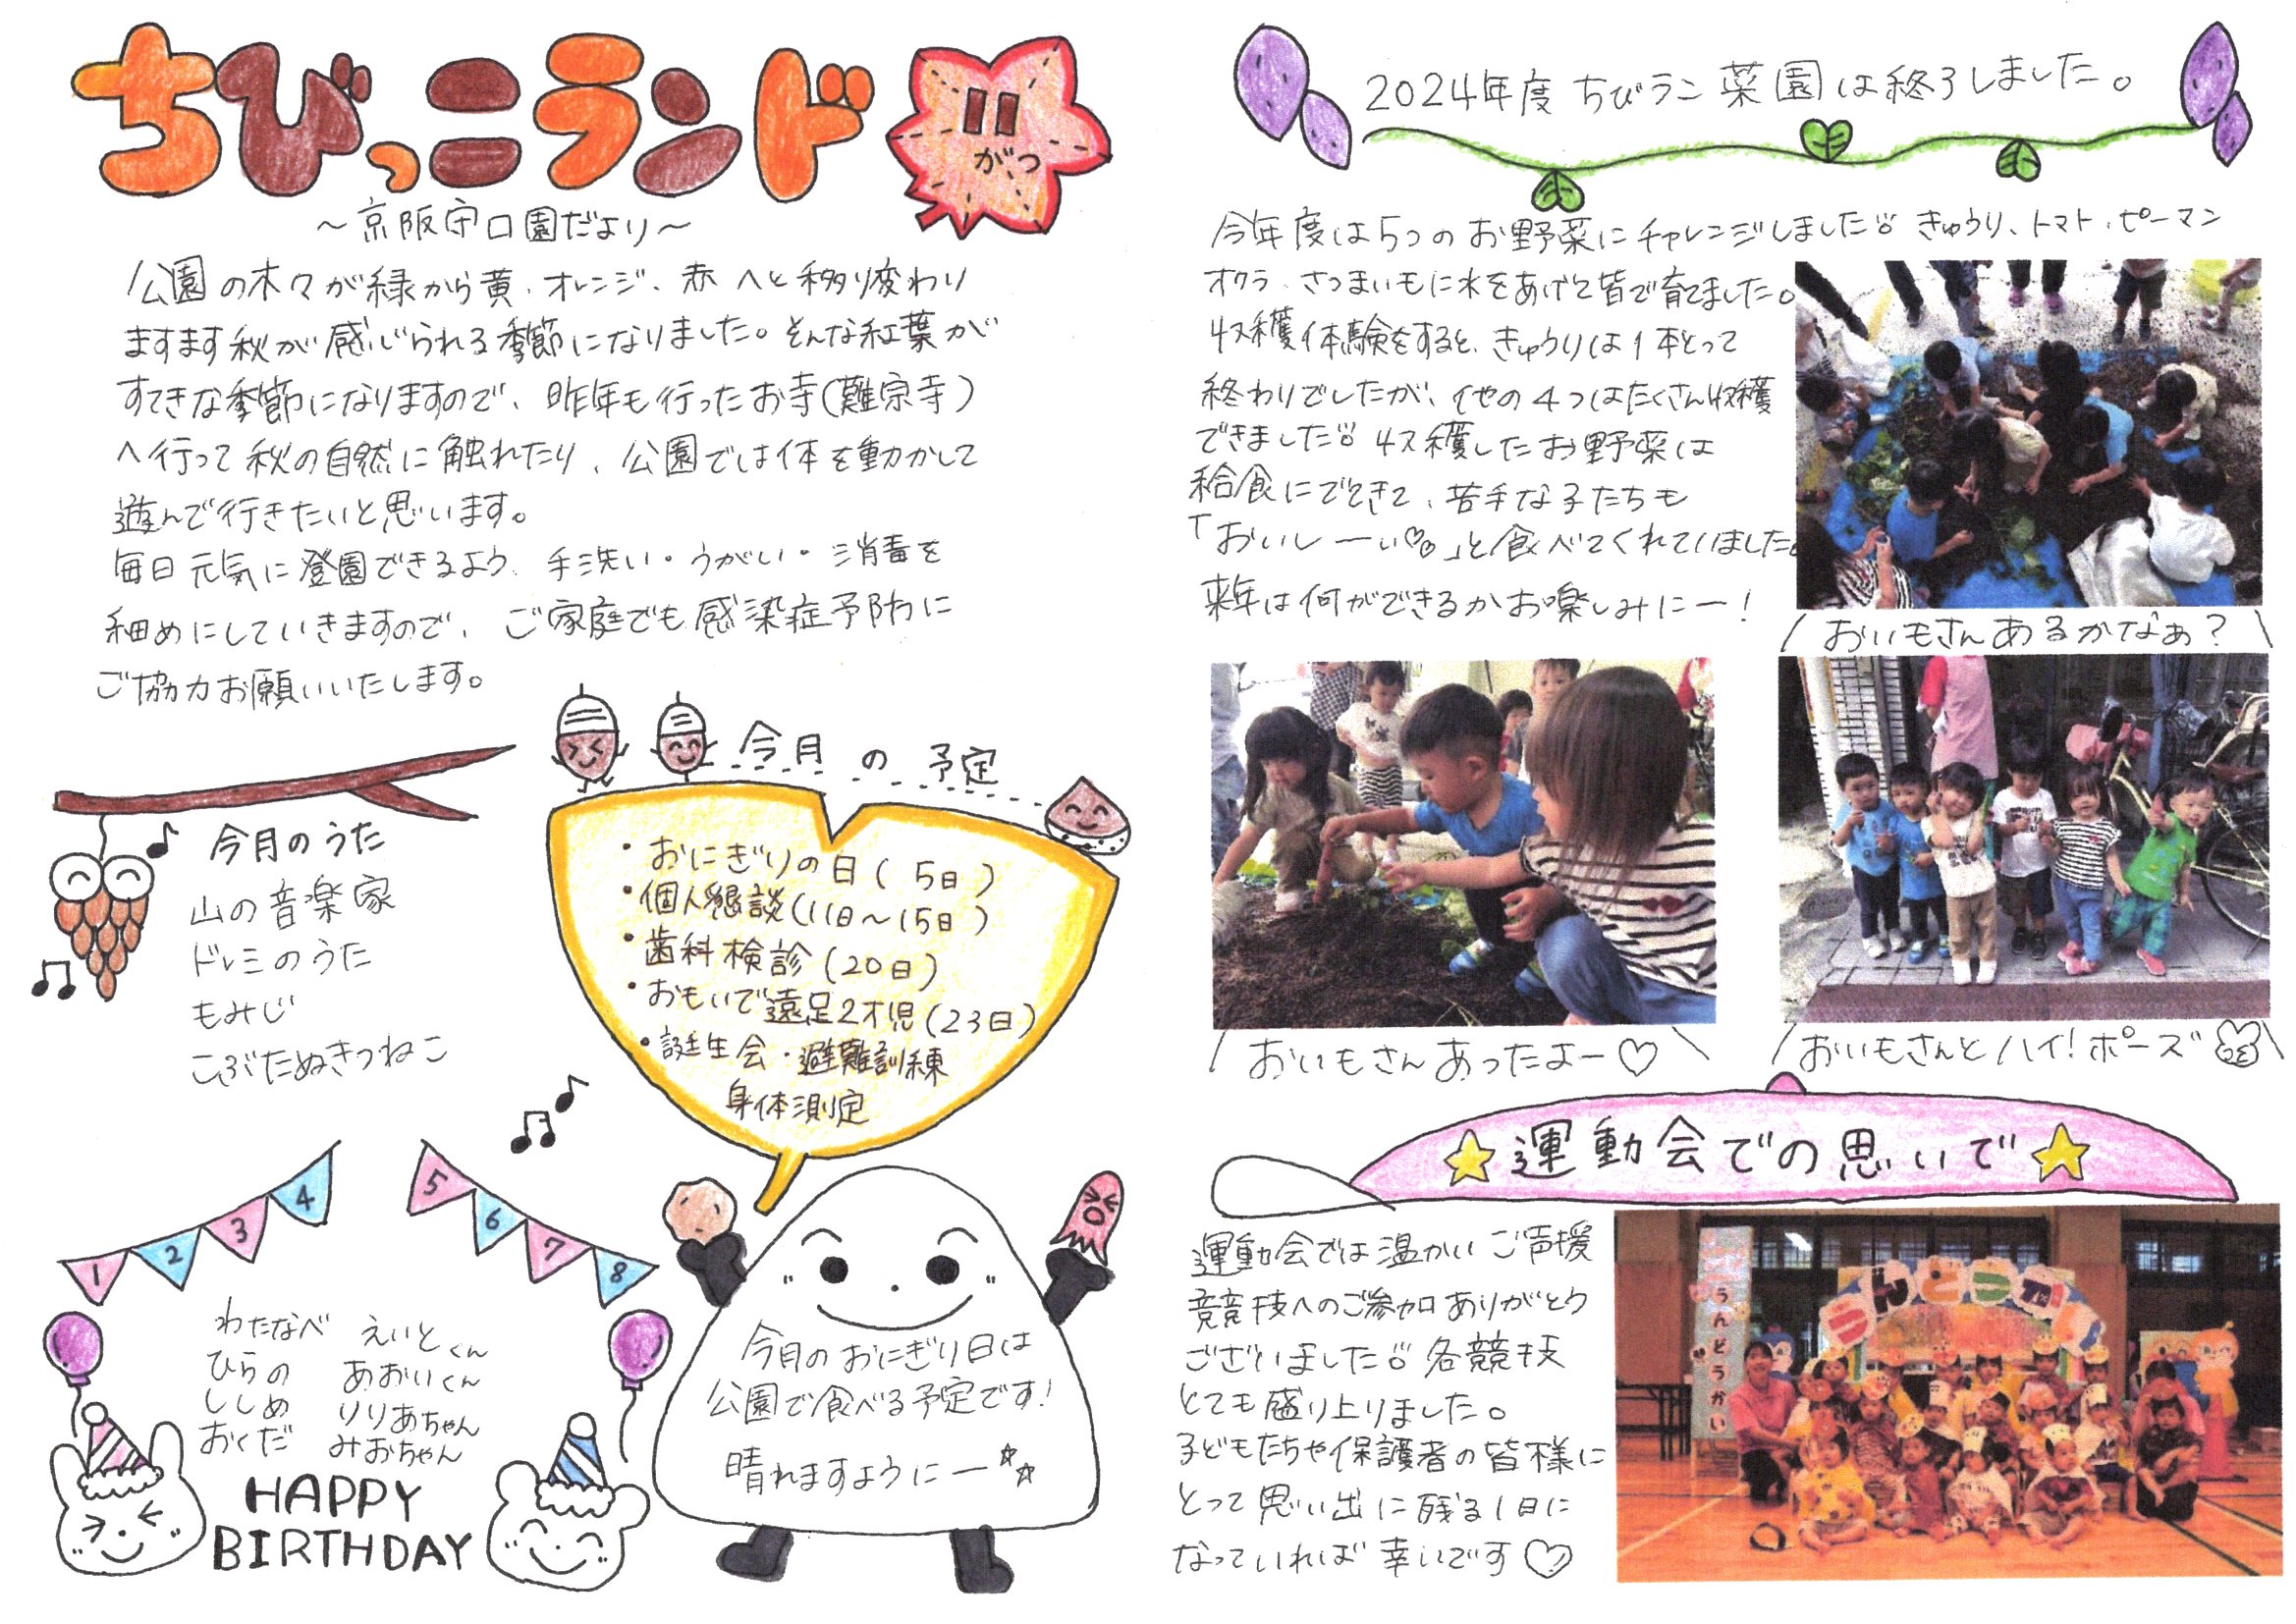 ちびっこランド
11
がつ
～京阪守口園だより～
公園の木々が緑から黄、オレンジ、赤へと移り変わり
ますます秋が感じられる季節になりました。そんな紅葉が
すてきな季節になりますので、昨年も行ったお寺(難宗寺)
へ行って秋の自然に触れたり、公園では体を動かして
遊んで行きたいと思います。
毎日元気に登園できるよう、手洗い・うがい・消毒を
細めにしていきますので、ご家庭でも感染症予防に
ご協力お願いいたします。
今月のうた
山の音楽家
ドレミのうた
もみじ
こぶたぬきつねこ
今月の予定
・おにぎりの日(5日)
・個人懇談(11日～15日)
・歯科検診(20日)
・おもいで遠足2才児(23日)
・誕生会・避難訓練
身体測定
1 2 3 4 5 6 7 8
わたなべ えいとくん
ひらの あおいくん
ししめ りりあちゃん
おくだ みおちゃん
HAPPY
BIRTHDAY
今月のおにぎり日は
公園で食べる予定です!
晴れますようにー☆☆
2024年度ちびラン菜園は終了しました。
今年度は5つのお野菜にチャレンジしました!! きゅうり、トマト、ピーマン
オクラ、さつまいもに水をあげて皆で育てました。
収穫体験をすると、きゅうりは1本とって
終わりでしたが、他の4つはたくさん収穫
できました!! 収穫したお野菜は
給食にでてきて、苦手な子たちも
「おいしーい♡。」と食べてくれていました。
来年は何ができるかお楽しみにー!
\ おいもさんあるかなぁ? /
\ おいもさんあったよー♡ /
\ おいもさんとハイ!ポーズ /
☆運動会での思いで☆
運動会では温かいご声援
競技へのご参加ありがとう
ございました!! 各競技
とても盛り上りました。
子どもたちや保護者の皆様に
とって思い出に残る1日に
なっていれば幸いです♡
うんどうかい